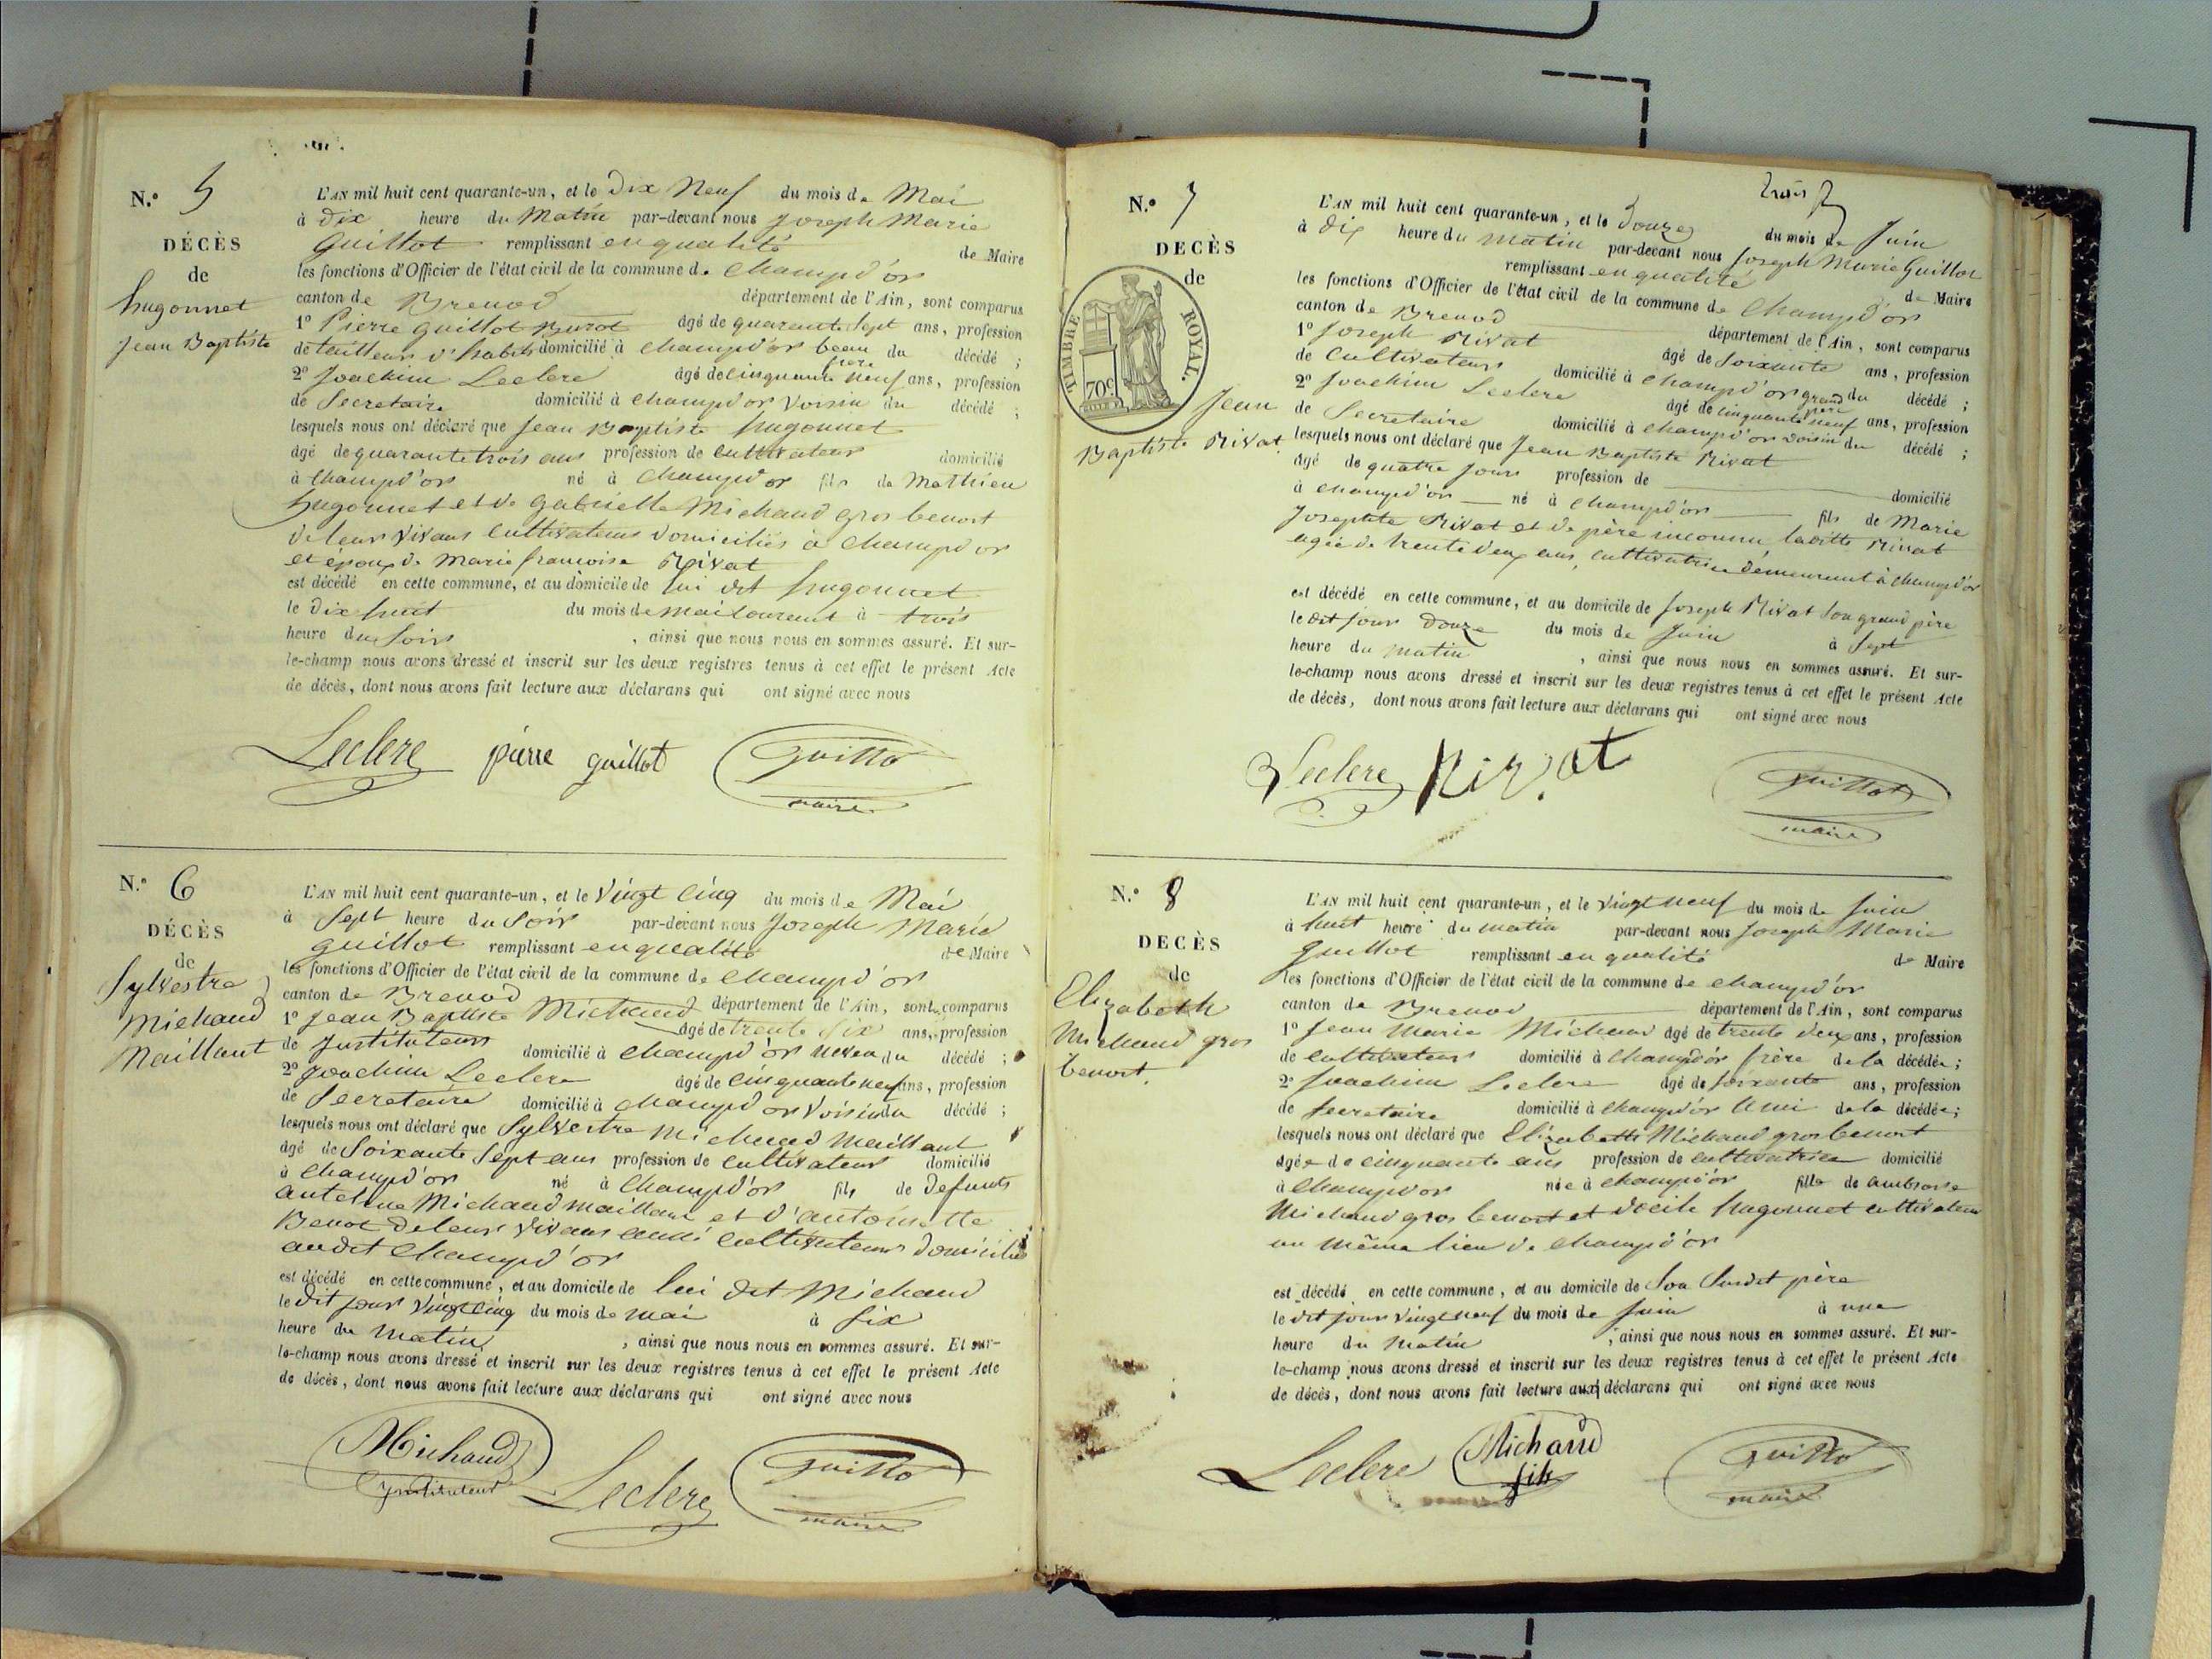 N.° 5
DÉCÈS
de
hugonnet
Jean Baptiste
L'AN mil huit cent quarante-un, et le Dix Neuf du mois de Mai
à Dix heure du Matin par-devant nous Joseph Marie
Guillot remplissant en qualité de Maire
les fonctions d'Officier de l'état civil de la commune de Champd'or
canton de Brenod département de l'Ain, sont comparus
1° Pierre Guillot Burot âgé de quarante Sept ans, profession
de tailleur d'habits domicilié à Champd'or beau frere du décédé ;
2° Joachim Leclerc âgé de cinquante Neuf ans, profession
de Secretaire domicilié à Champd'or Voisin du décédé ;
lesquels nous ont déclaré que Jean Baptiste hugonnet
âgé de quarante trois ans profession de cultivateur domicilié
à Champd'or né à Champd'or fils de Mathieu
hugonnet et de Gabrielle Michaud gros benoit
de leur vivans cultivateurs domiciliés à Champd'or
et époux de Marie françoise Rivat
est décédé en cette commune, et au domicile de lui dit hugonnet
le Dix huit du mois de Mai courant à trois
heure du Soir , ainsi que nous nous en sommes assuré. Et sur-
le-champ nous avons dressé et inscrit sur les deux registres tenus à cet effet le présent Acte
de décès, dont nous avons fait lecture aux déclarans qui ont signé avec nous
Leclerc pierre guillot Guillot
maire
N.° 6
DÉCÈS
de
Sylvestre
Michaud
Maillant
L'AN mil huit cent quarante-un, et le Vingt Cinq du mois de Mai
à Sept heure du Soir par-devant nous Joseph Marie
Guillot remplissant en qualité de Maire
les fonctions d'Officier de l'état civil de la commune de Champd'or
canton de Brenod département de l'Ain, sont comparus
1° Jean Baptiste Michaud âgé de trente Six ans, profession
de Instituteur domicilié à Champd'or neveu du décédé ;
2° Joachim Leclerc âgé de Cinquante neuf ans, profession
de Secretaire domicilié à Champd'or Voisin du décédé ;
lesquels nous ont déclaré que Sylvestre Michaud Maillant
âgé de Soixante Sept ans profession de cultivateur domicilié
à Champd'or né à Champd'or fils de Defunts
antelme Michaud maillant et d'antoinette
Benoit de leur vivans aussi cultivateurs domiciliés
audit Champd'or
est décédé en cette commune, et au domicile de lui dit Michaud
le dit jour Vingt Cinq du mois de Mai à Six
heure du Matin , ainsi que nous nous en sommes assuré. Et sur-
le-champ nous avons dressé et inscrit sur les deux registres tenus à cet effet le présent Acte
de décès, dont nous avons fait lecture aux déclarans qui ont signé avec nous
Michaud
Instituteur Leclerc Guillot
maire
trois
N.° 7
DECÈS
de
TIMBRE ROYAL.
70c
Jean
Baptiste Rivat
L'AN mil huit cent quarante-un, et le Douze du mois de Juin
à Dix heure du matin par-devant nous Joseph Marie Guillot
remplissant en qualité de Maire
les fonctions d'Officier de l'état civil de la commune de Champd'or
canton de Brenod département de l'Ain, sont comparus
1° Joseph Rivat âgé de Soixante ans, profession
de Cultivateur domicilié à Champd'or grand pere du décédé ;
2° Joachim Leclerc âgé de cinquante neuf ans, profession
de Secretaire domicilié à Champd'or voisin du décédé ;
lesquels nous ont déclaré que Jean Baptiste Rivat
âgé de quatre jours profession de domicilié
à Champd'or né à Champd'or fils de Marie
Josephte Rivat et de père inconnu, ladite Rivat
agée de trente deux ans, cultivatrice demeurant à Champd'or
est décédé en cette commune, et au domicile de Joseph Rivat Son grand père
le dit jour Douze du mois de Juin à Sept
heure du matin , ainsi que nous nous en sommes assuré. Et sur-
le-champ nous avons dressé et inscrit sur les deux registres tenus à cet effet le présent Acte
de décès, dont nous avons fait lecture aux déclarans qui ont signé avec nous
Leclerc Rivat Guillot
maire
N.° 8
DECÈS
de
Elizabeth
Michaud gros
benoit
L'AN mil huit cent quarante-un, et le Vingt neuf du mois de Juin
à huit heure du matin par-devant nous Joseph Marie
Guillot remplissant en qualité de Maire
les fonctions d'Officier de l'état civil de la commune de Champd'or
canton de Brenod département de l'Ain, sont comparus
1° Jean Marie Michaud âgé de trente deux ans, profession
de cultivateur domicilié à Champd'or frère de la décédée ;
2° Joachim Leclerc âgé de soixante ans, profession
de Secretaire domicilié à Champd'or Ami de la décédée ;
lesquels nous ont déclaré que Elizabeth Michaud gros benoit
âgée de cinquante ans profession de cultivatrice domicilié
à Champd'or née à Champd'or fille de ambroise
Michaud gros benoit et hugonnet cultivateur
au même lieu de Champd'or
est décédé en cette commune, et au domicile de Son Susdit père
le dit jour Vingt neuf du mois de Juin à une
heure du Matin , ainsi que nous nous en sommes assuré. Et sur-
le-champ nous avons dressé et inscrit sur les deux registres tenus à cet effet le présent Acte
de décès, dont nous avons fait lecture aux déclarans qui ont signé avec nous
Leclerc Michaud
fils Guillot
maire